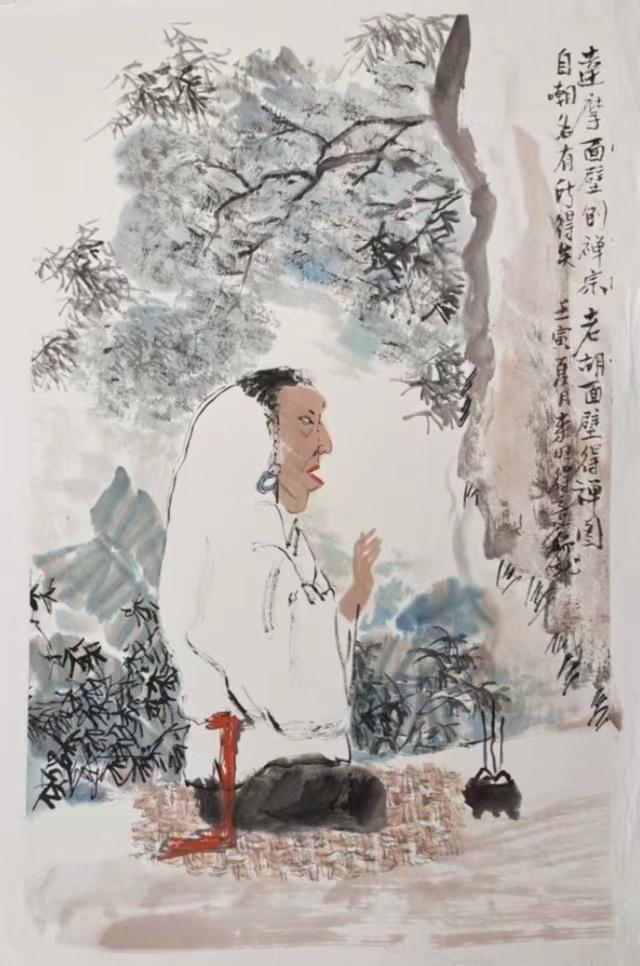 達摩面壁創禅宗老胡面壁得禅图
自嘲名有所得矣 壬寅夏月李